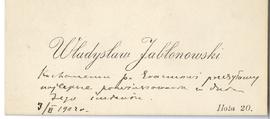 Władysław Jabłonowski
Kochanemu p. Erazmowi przesyłamy
najlepsze powinszowania w dniu
Jego imienin.
3/II 1902 r.
Hoża 20.